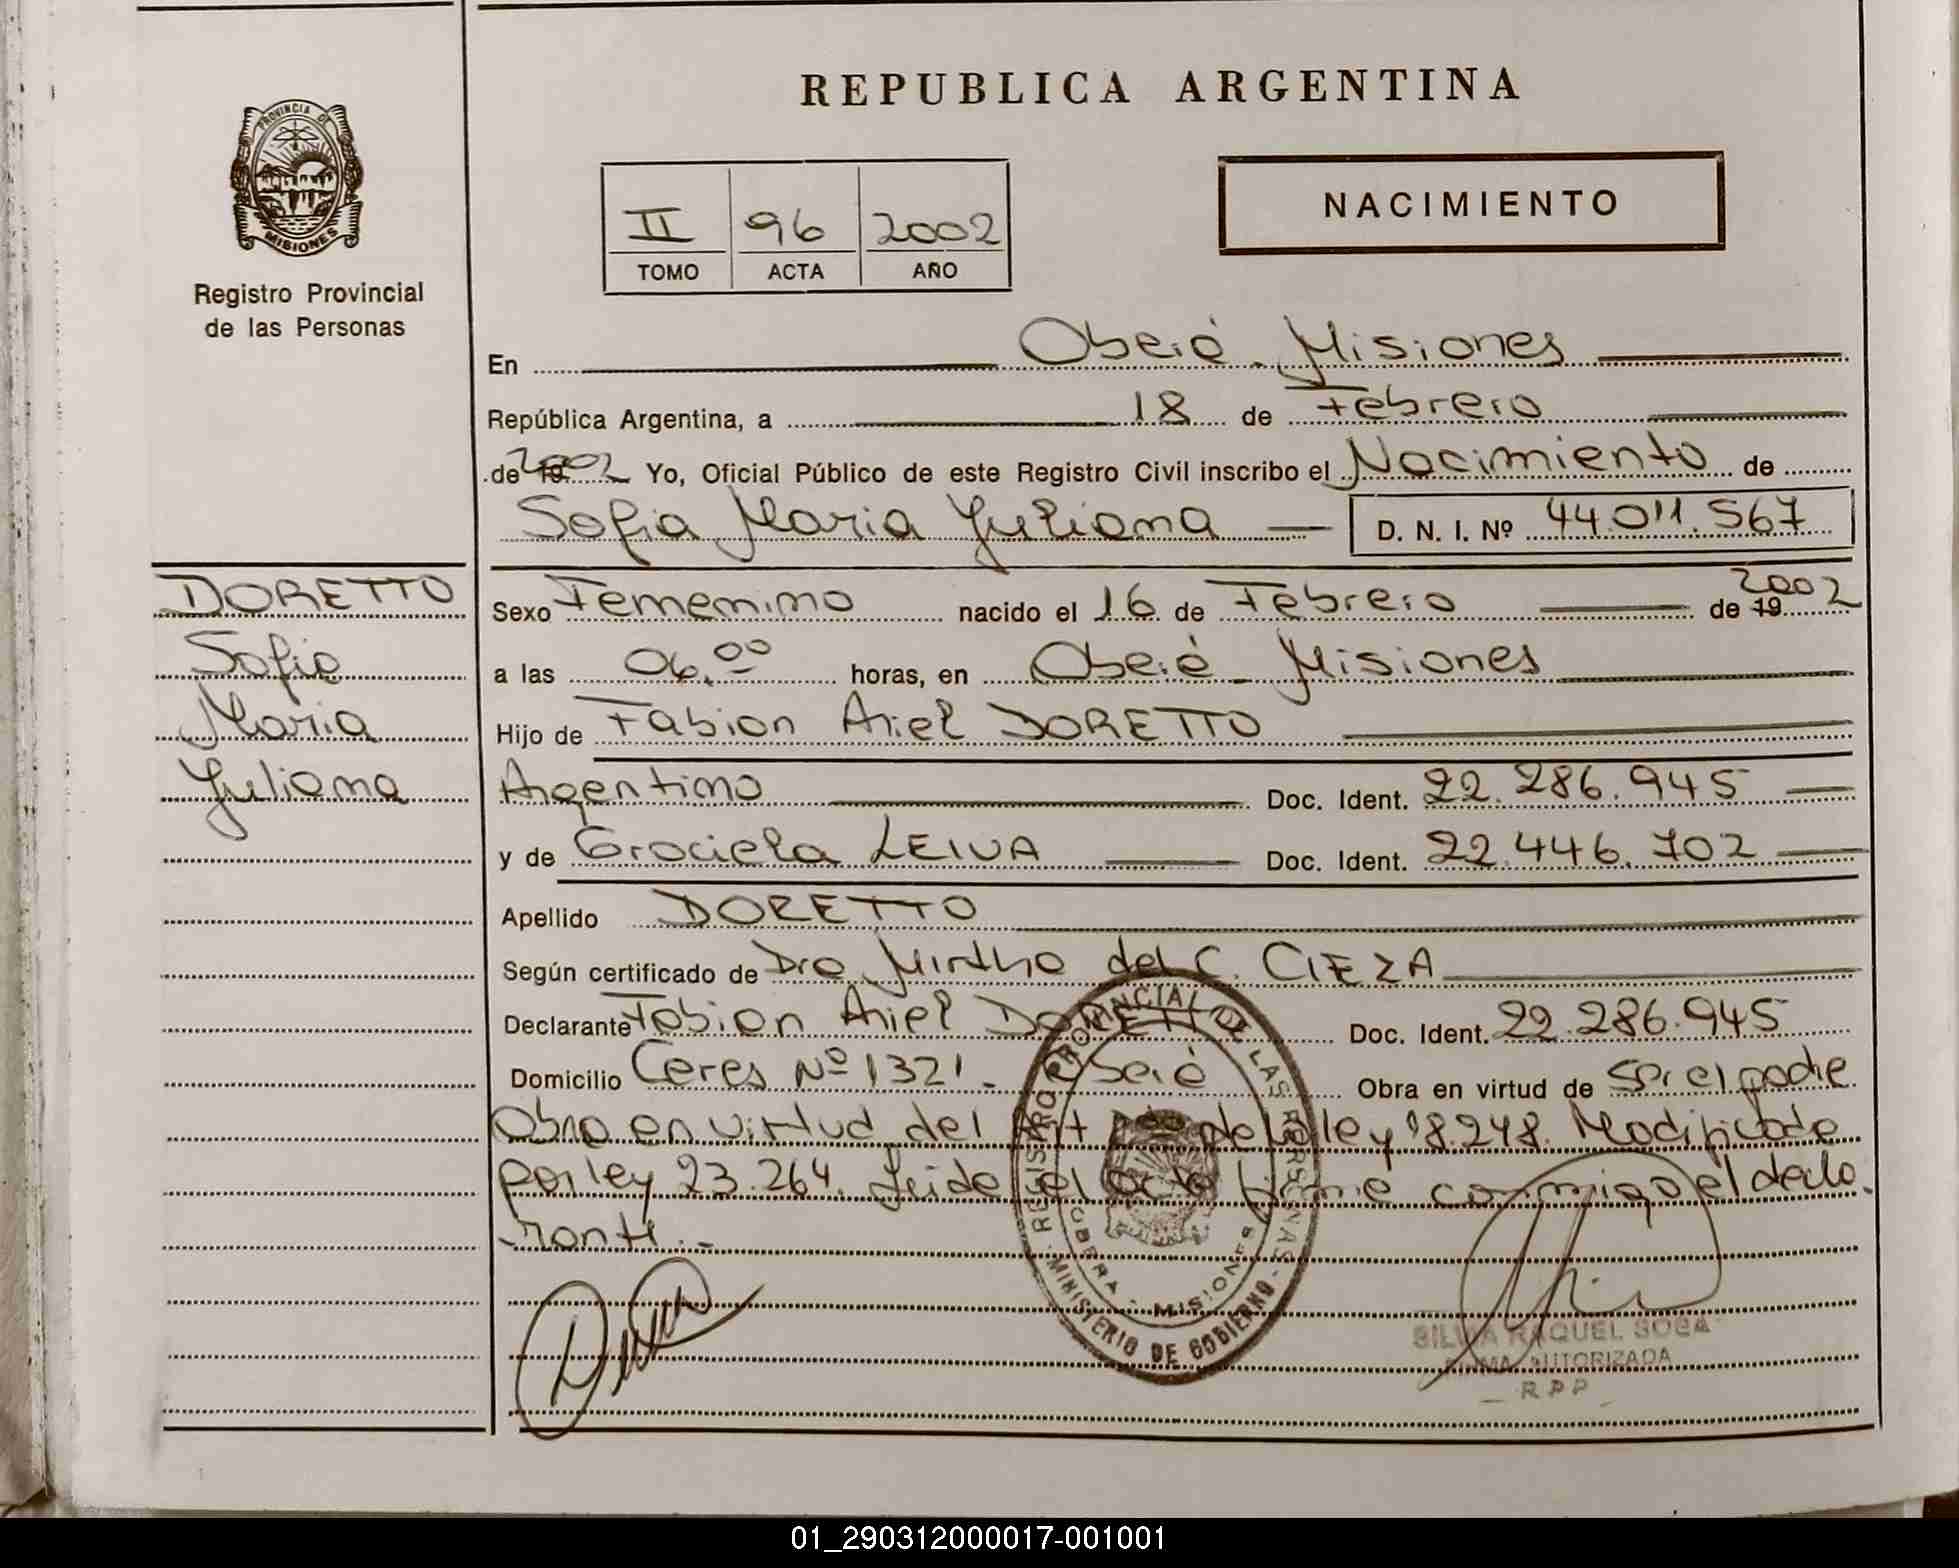 REPUBLICA ARGENTINA
PROVINCIA DE MISIONES
Registro Provincial
de las Personas
II 96 2002
TOMO ACTA AÑO
NACIMIENTO
En Oberá - Misiones
República Argentina, a 18 de Febrero
de 19 2002 Yo, Oficial Público de este Registro Civil inscribo el Nacimiento de
Sofia Maria Juliana D. N. I. Nº 44.011.567
DORETTO
Sofia
Maria
Juliana
Sexo Femenino nacido el 16 de Febrero de 19 2002
a las 06,00 horas, en Oberá - Misiones
Hijo de Fabian Ariel DORETTO
Argentino Doc. Ident. 22.286.945
y de Graciela LEIVA Doc. Ident. 22.446.702
Apellido DORETTO
Según certificado de Dra. Mirtha del C. CIEZA
Declarante Fabian Ariel DORETTO Doc. Ident. 22.286.945
Domicilio Ceres Nº 1321 - Oberá Obra en virtud de Ser el padre
Obra en virtud del Art de la ley 18.248. Modificada
por ley 23.264. Leida el acta firma conmigo el decla
rante.-
REGISTRO PROVINCIAL DE LAS PERSONAS
OBERA - MISIONES
MINISTERIO DE GOBIERNO
SILVIA RAQUEL SOSA
FIRMA AUTORIZADA
R P P
01_290312000017-001001